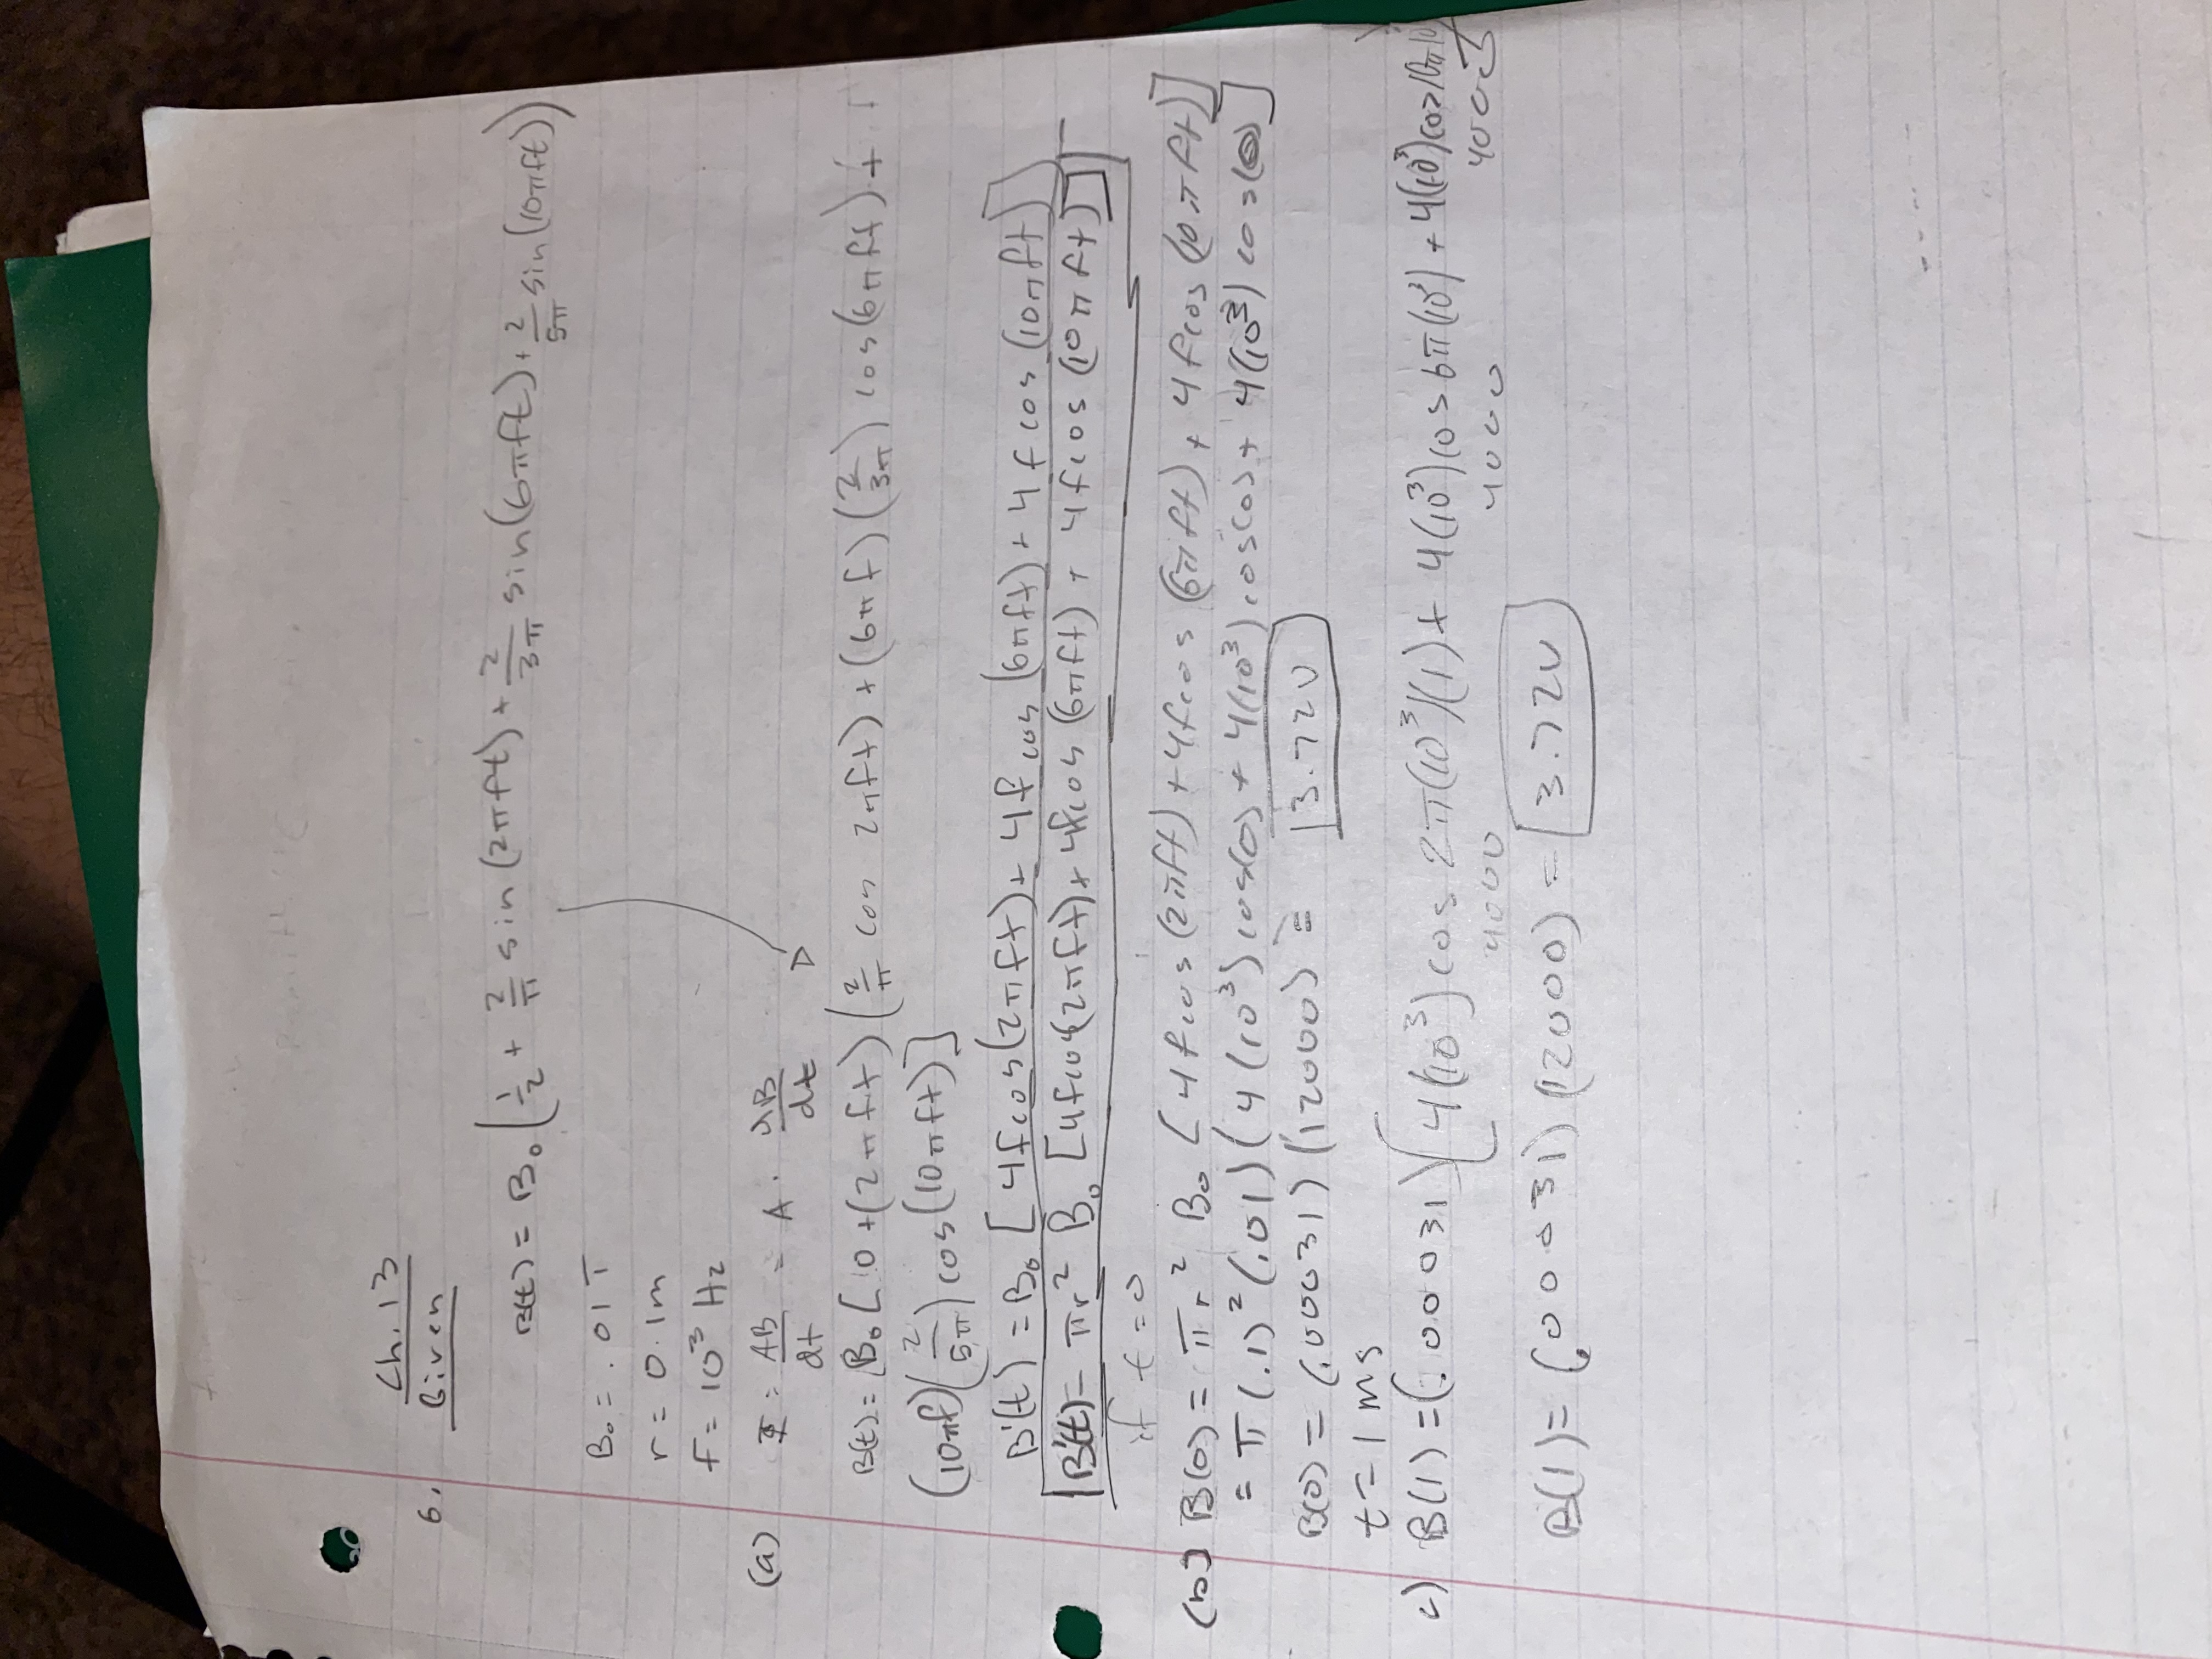 Ch. 13
6. Given
B(t) = B₀ (1/2 + 2/π sin (2πft) + 2/3π sin(6πft) + 2/5π sin(10πft))
B₀ = .01 T
r = 0.1m
f = 10³ Hz
(a) Φ = AB/dt = A · dB/dt
B(t) = B₀ [ 0 + (2πft) (2/π cos 2πft) + (6πf) (2/3π) cos(6πft) +
(10πf) (2/5π) cos(10πft)]
B'(t) = B₀ [4fcos(2πft) + 4fcos (6πft) + 4fcos (10πft)]
B'(t) = πr² B₀ [4fcos(2πft) + 4fcos (6πft) + 4fcos (10πft)]
if t = 0
(b) B(0) = πr² B₀ [4fcos (2πft) + 4fcos (6πft) + 4fcos (10πft)]
= π (.1)² (.01) (4 (10³) cos(0) + 4(10³) cos(0) + 4(10³) cos(0)]
B(0) = (.00031) (12000) = 3.72V
t = 1 ms
c) B(1) = (.00031) [4(10³) cos 2π(10³)(1) + 4(10³) cos 6π(10³) + 4(10³) cos 10π
4000 4000 4000
B(1) = (.00031) (12000) = 3.72V